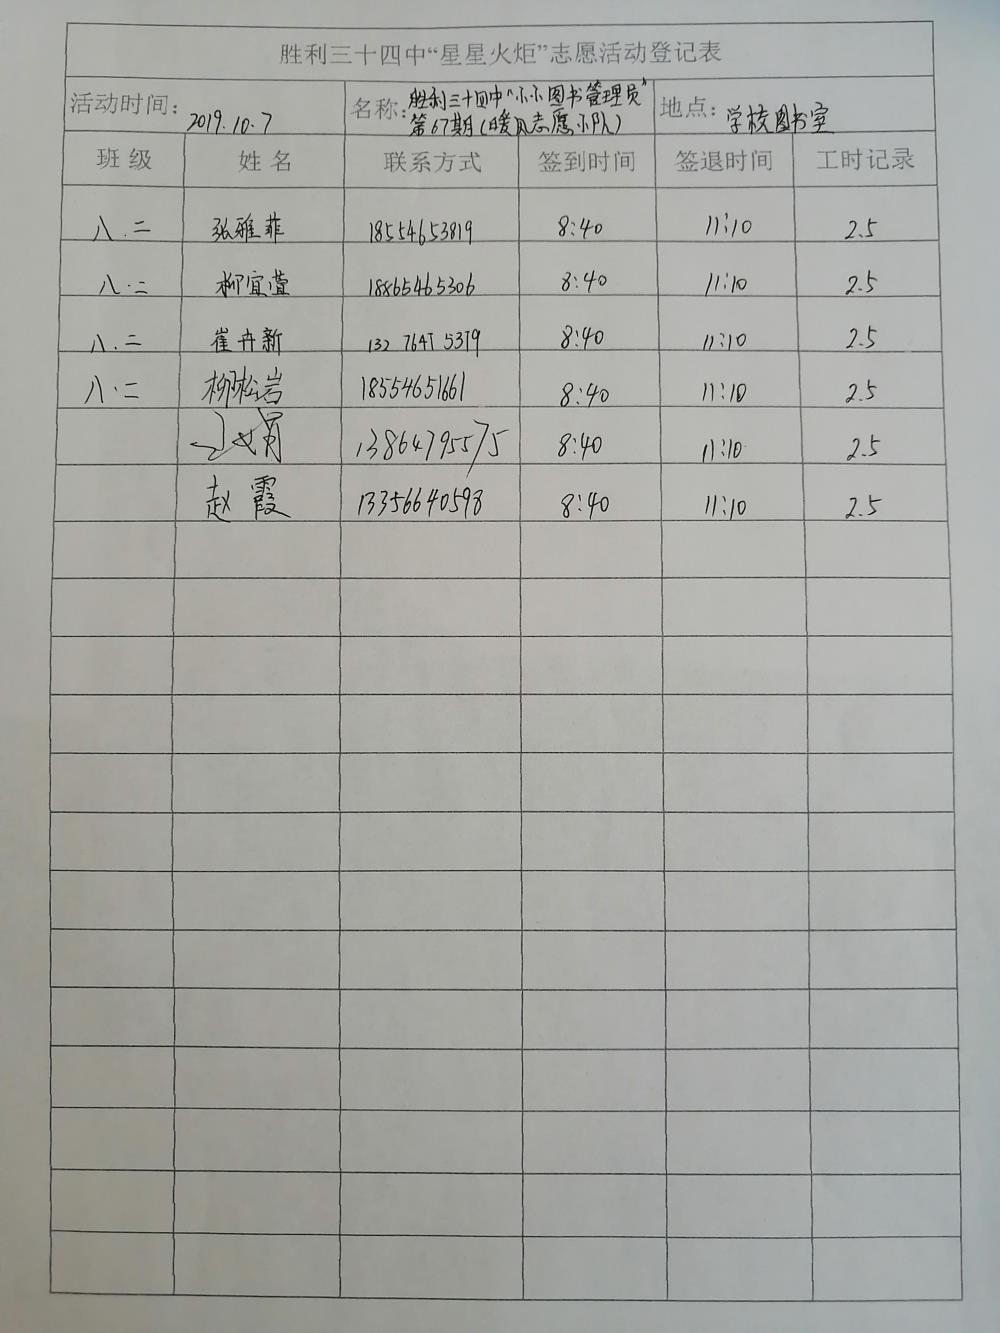 胜利三十四中“星星火炬”志愿活动登记表
活动时间: 2019.10.7 名称: 胜利三十四中“小小图书管理员” 地点: 学校图书室
第67期(暖风志愿小队)
班级 姓名 联系方式 签到时间 签退时间 工时记录
八.二 张雅菲 18554653819 8:40 11:10 2.5
八.二 柳宜萱 18865465306 8:40 11:10 2.5
八.二 崔卉新 8:40 11:10 2.5
八.二 柳松岩 18554651661 8:40 11:10 2.5
13864795575 8:40 11:10 2.5
赵霞 13356640598 8:40 11:10 2.5